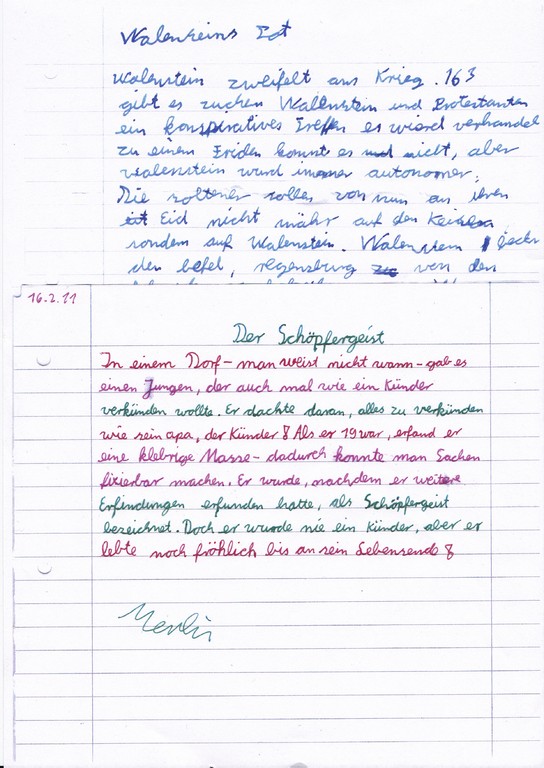 Walensteins Tot
Walenstein zweifelt am Krieg. 163
gibt es zuchen Wallenstein und Protestanten
ein konspiratives Treffen es wierd verhandel
zu einem Friden kommt es nicht, aber
walenstein wurd immer autonomer.
Die soltener sollen von nun an ihren
Eid nicht mähr auf den
sondern auf Walenstein. Walenstein
den befel, regensburg von den
16.2.11
Der Schöpfergeist
In einem Dorf - man weist nicht wann - gab es
einen Jungen, der auch mal wie ein Künder
verkünden wollte. Er dachte daran, alles zu verkünden
wie sein apa, der Künder! Als er 19 war, erfand er
eine klebrige Masse - dadurch konnte man Sachen
fixierbar machen. Er wurde, nachdem er weitere
Erfindungen erfunden hatte, als Schöpfergeist
bezeichnet. Doch er wurde nie ein Künder, aber er
lebte noch fröhlich bis an sein Lebensende!
Merlin